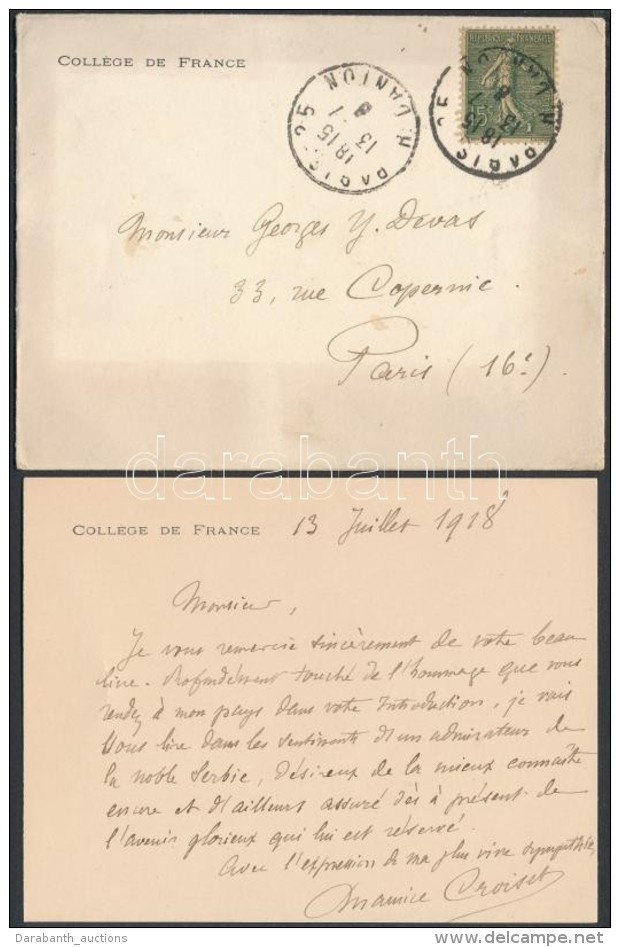 COLLÈGE DE FRANCE
RÉPUBLIQUE FRANÇAISE
15
PARIS 25
R. DANTON
18 15
13 7
PARIS 25
R. DANTON
18 15
13 7
Monsieur Georges Y. Devas
33, rue Copernic.
Paris (16e).
darabanth
COLLÈGE DE FRANCE 13 Juillet 1918
Monsieur,
Je vous remercie sincèrement de votre beau
livre. Profondément touché de l'hommage que vous
rendez à mon pays dans votre Introduction, je vais
vous lire dans les sentiments d'un admirateur de
la noble Serbie, désireux de la mieux connaître
encore et d'ailleurs assuré dès à présent de
l'avenir glorieux qui lui est réservé.
Avec l'expression de ma plus vive sympathie,
Maurice Croiset
Darabanth_auctions
delcampe.net